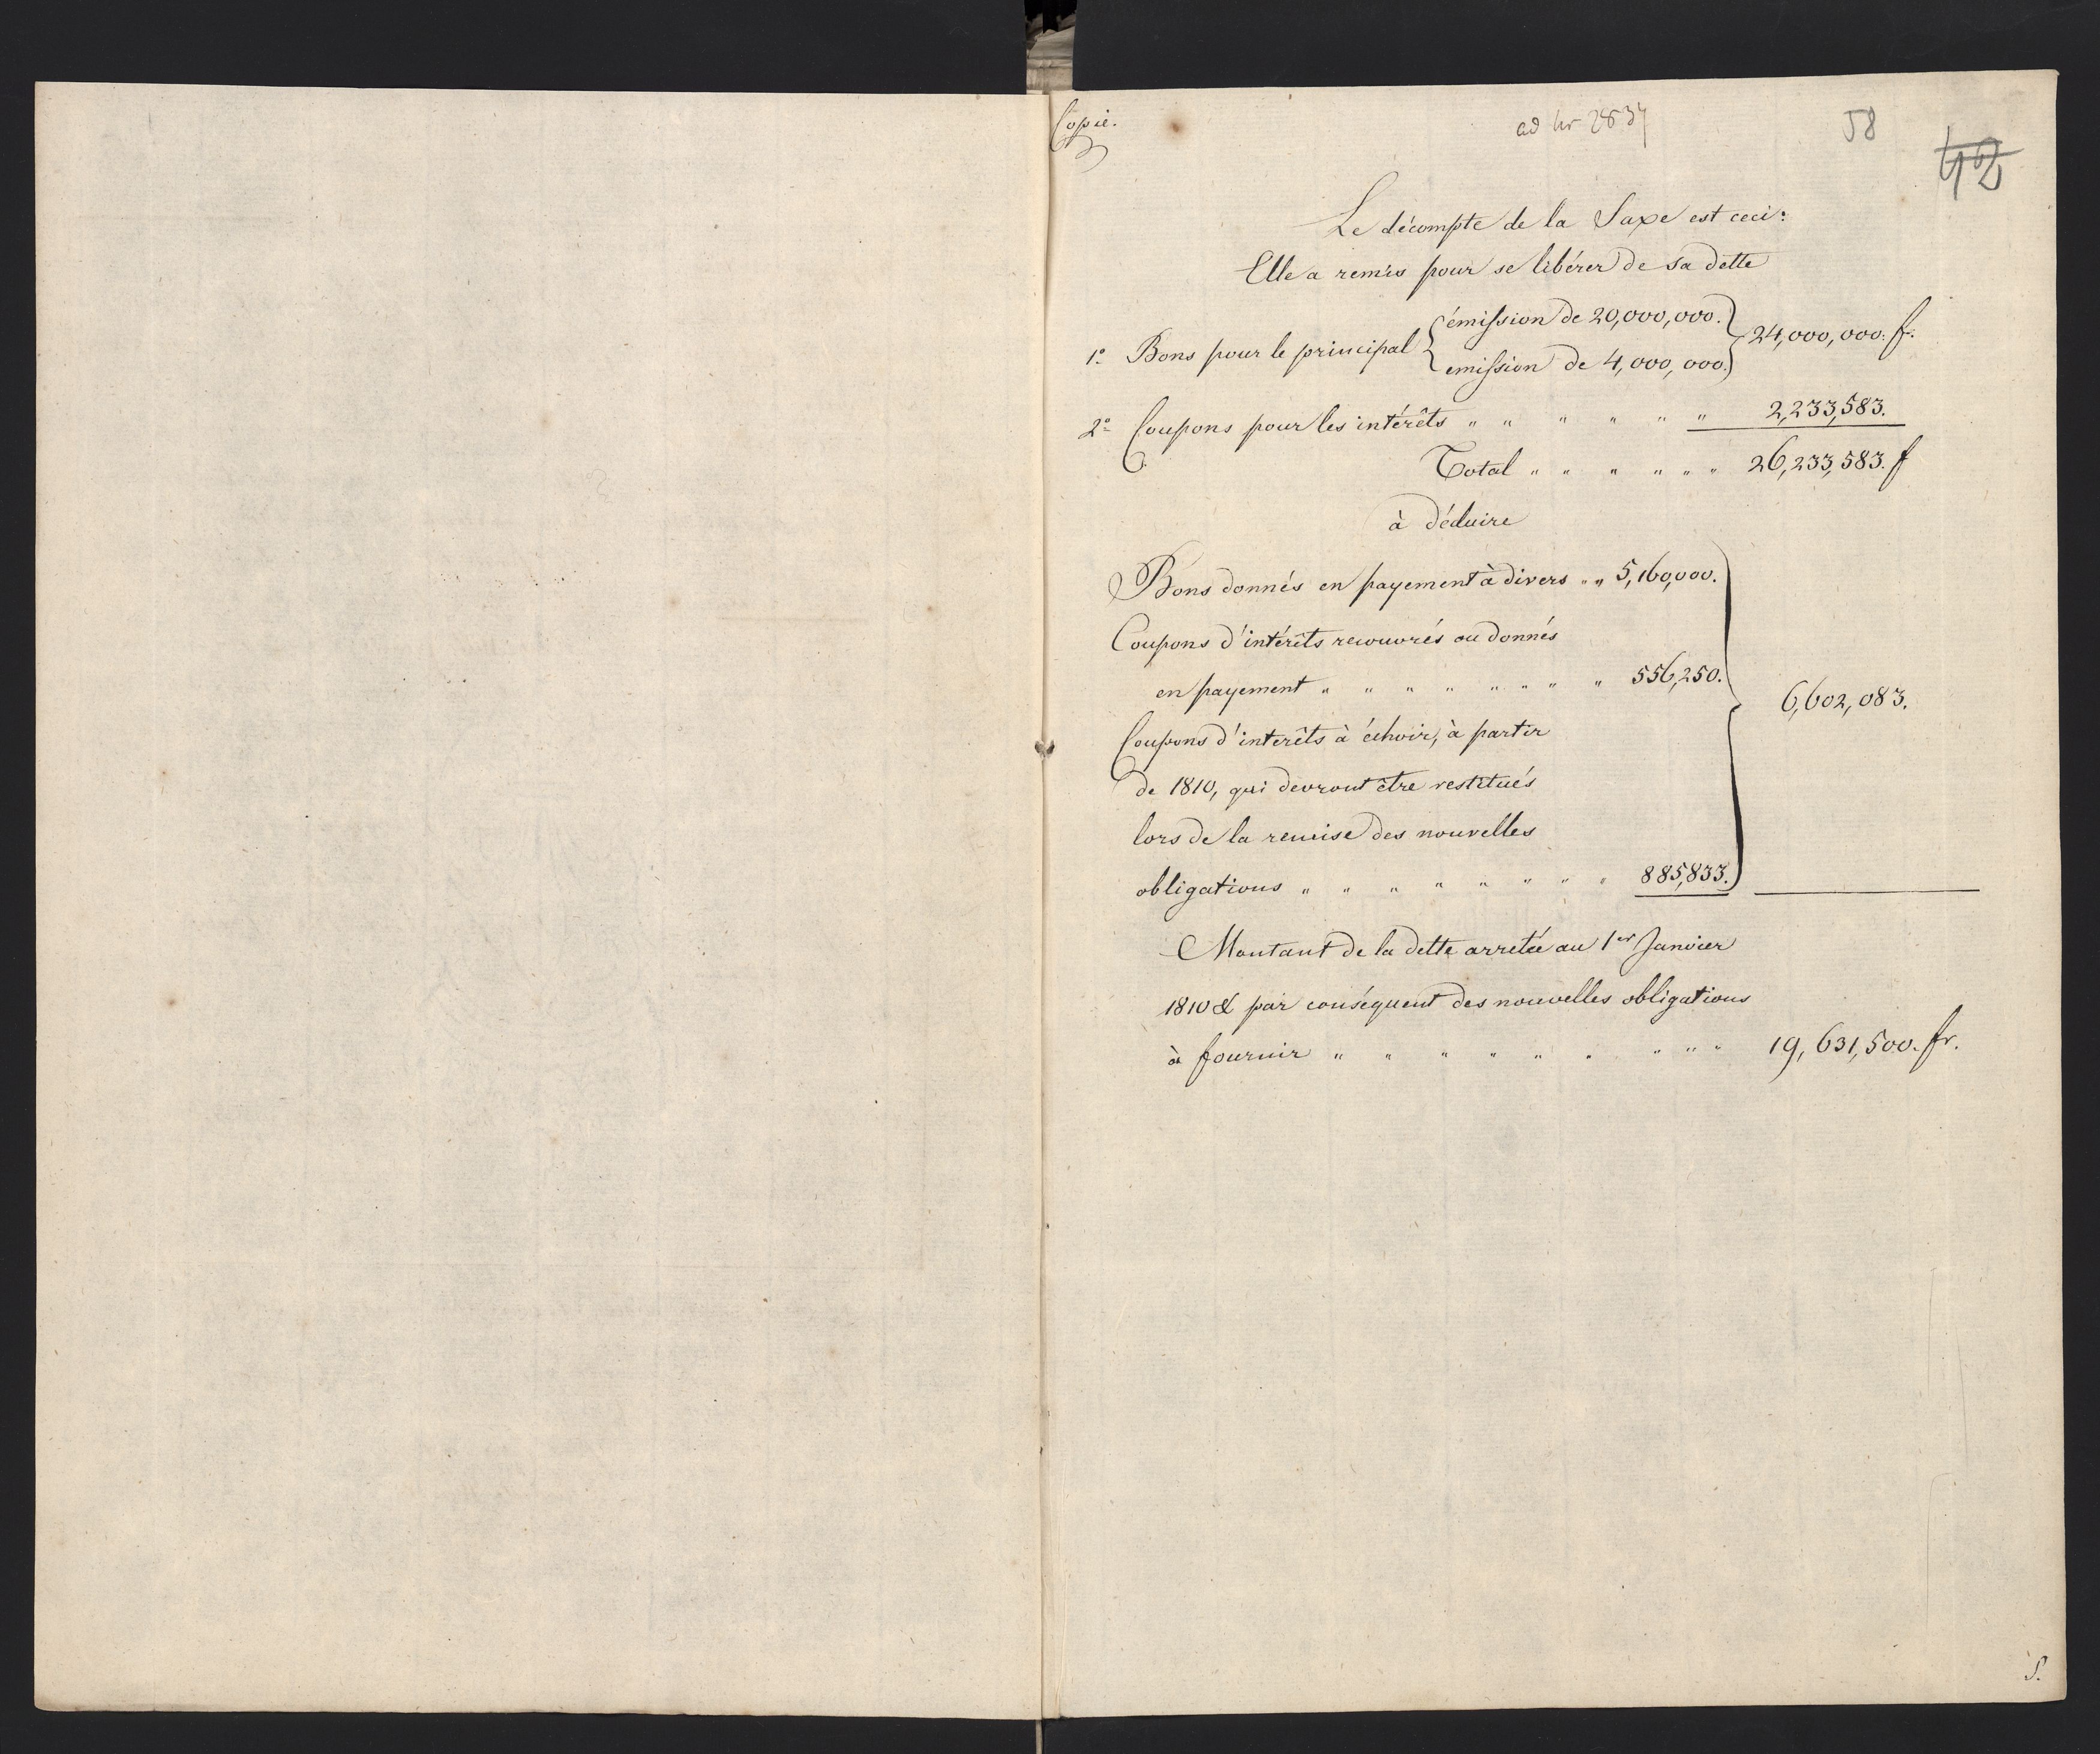 Copie.
ad nr 2837
58
Le décompte de la Saxe est ceci:
Elle a remis pour se libérer de sa dette
1° Bons pour le principal { émission de 20,000,000. } 24,000,000. fr.
emission de 4,000,000.
2° Coupons pour les intérêts " " " " " " 2,233,583.
Total " " " " " " 26,233,583. f
à déduire
Bons donnés en payement à divers " " 5,160,000.
Coupons d'intérêts recouvrés ou donnés
en payement " " " " " " " " 556,250.
6,602,083.
Coupons d'interêts à échoir, à partir
de 1810, qui devront être restitués
lors de la remise des nouvelles
obligations " " " " " " " " 885,833.
Montant de la dette arretée au 1er Janvier
1810 & par conséquent des nouvelles obligations
à fournir " " " " " " " " " 19,631,500. fr.